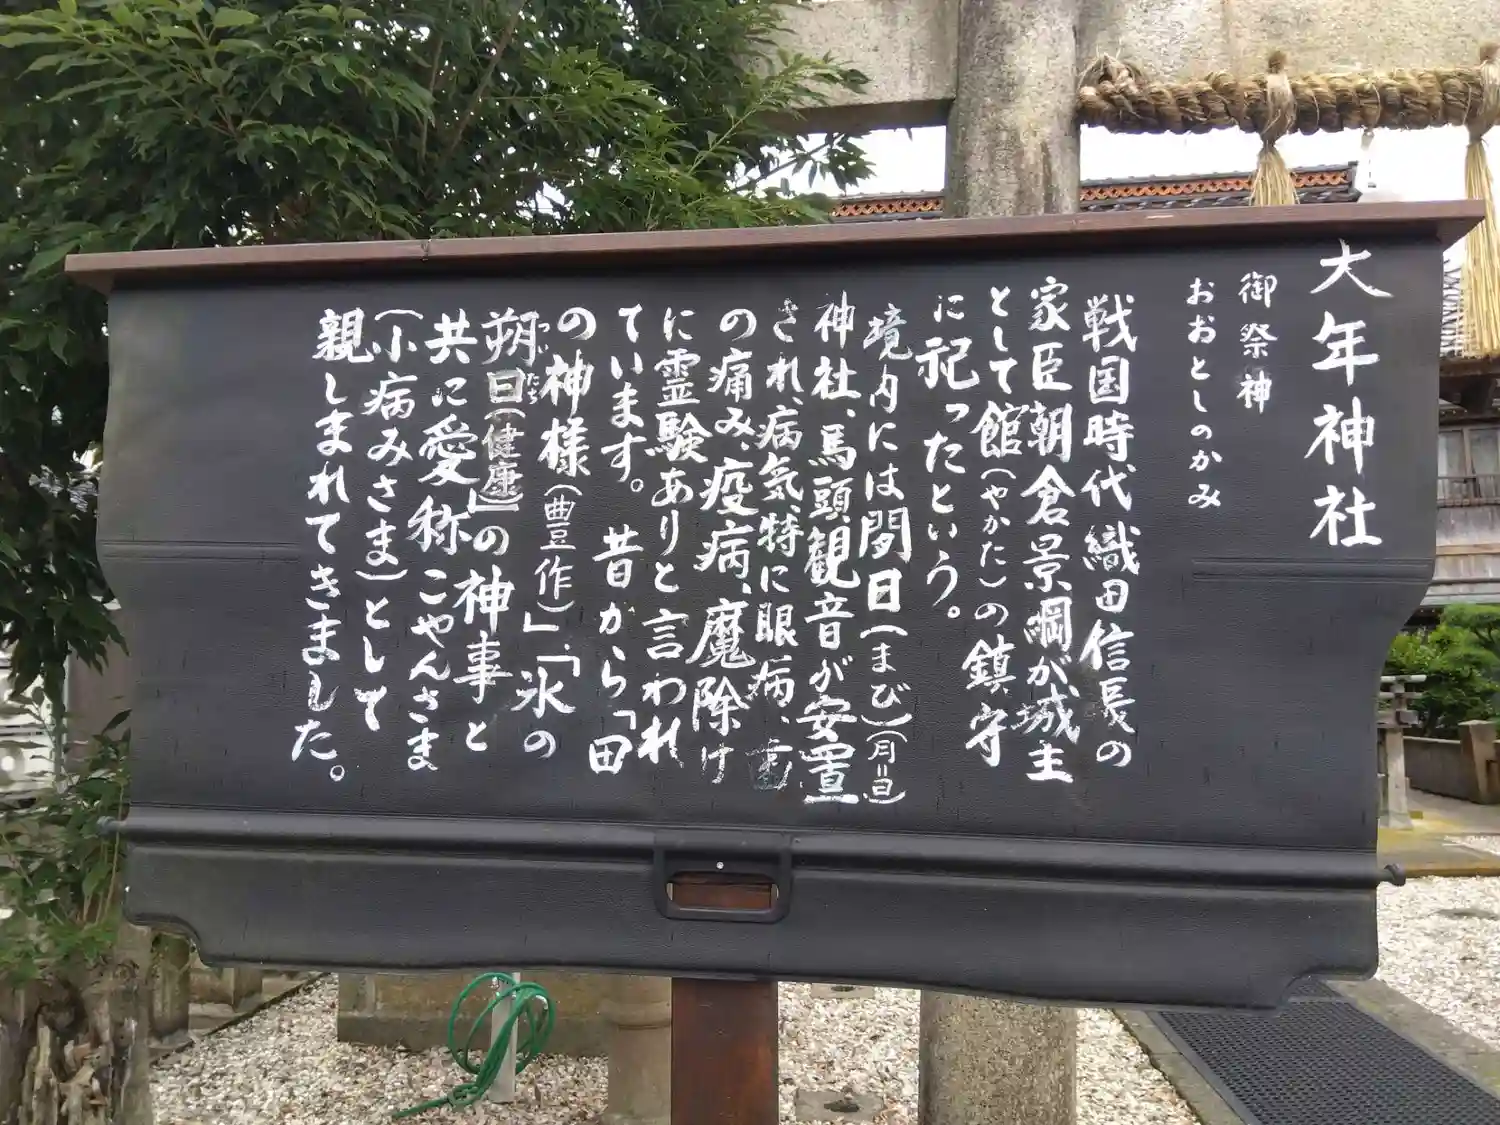 大年神社
御祭神
おおとしのかみ
戦国時代織田信長の
家臣朝倉景綱が城主
として館(やかた)の鎮守
に祀ったという。
境内には閖日(まび)(月=日)
神社、馬頭観音が安置
され、病気、特に眼病、歯
の痛み、疫病、魔除け
に霊験ありと言われ
ています。 昔から「田
の神様(豊作)」・「氷の
朔日(健康)」の神事と
ついたち
共に愛称こやんさま
(小病みさま)として
親しまれてきました。